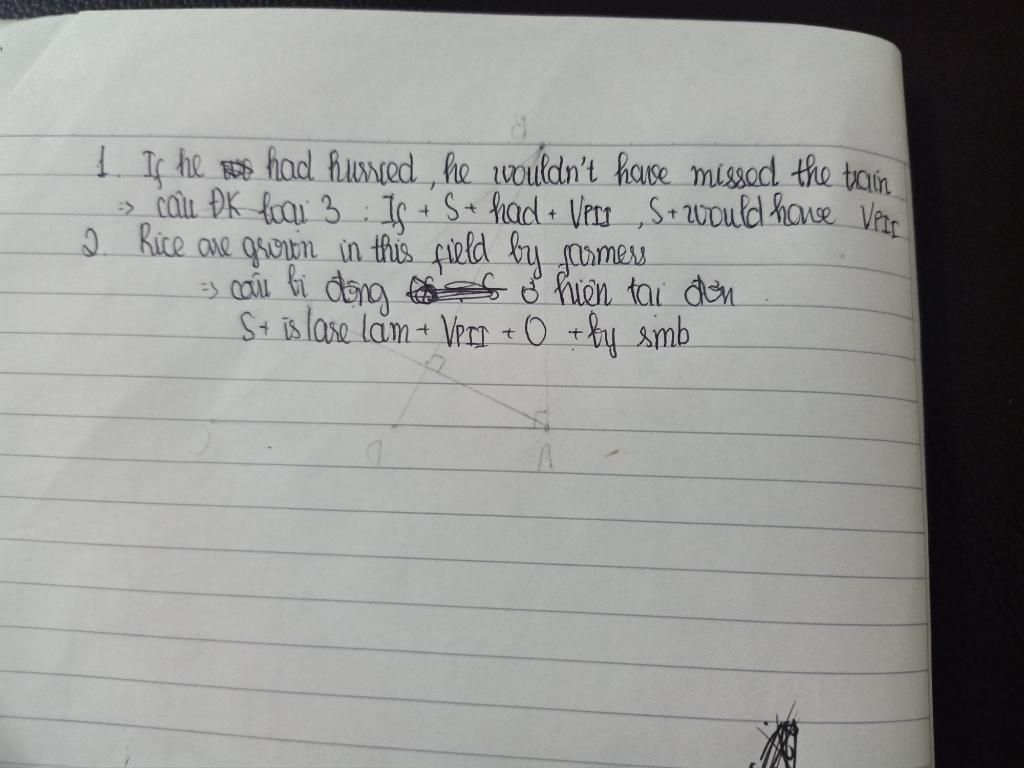 1. If he had hurried, he wouldn't have missed the train
=> câu ĐK loại 3 : If + S + had + VPII, S + would have VPII
2. Rice are grown in this field by farmers
=> câu bị động ở hiện tại đơn
S + is/are/am + VPII + O + by smb
B
D
A